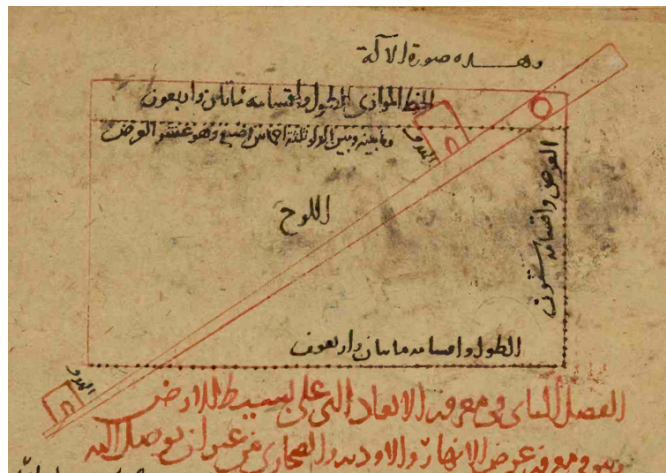 وهذه صورة الآلة
الخط الموازي للطول واقسامه مائتان واربعون
وما بينه وبين الاول ثلثة اخماس اصبع وهو عشر العرض
الهدف
العرض واقسامه ستون
اللوح
الطول واقسامه مائتان واربعون
الهدف
الفصل الثاني في معرفة الابعاد التي على بسيط الارض
ومعرفة عرض الانهار والاودية والصحاري من غير ان يوصل اليه